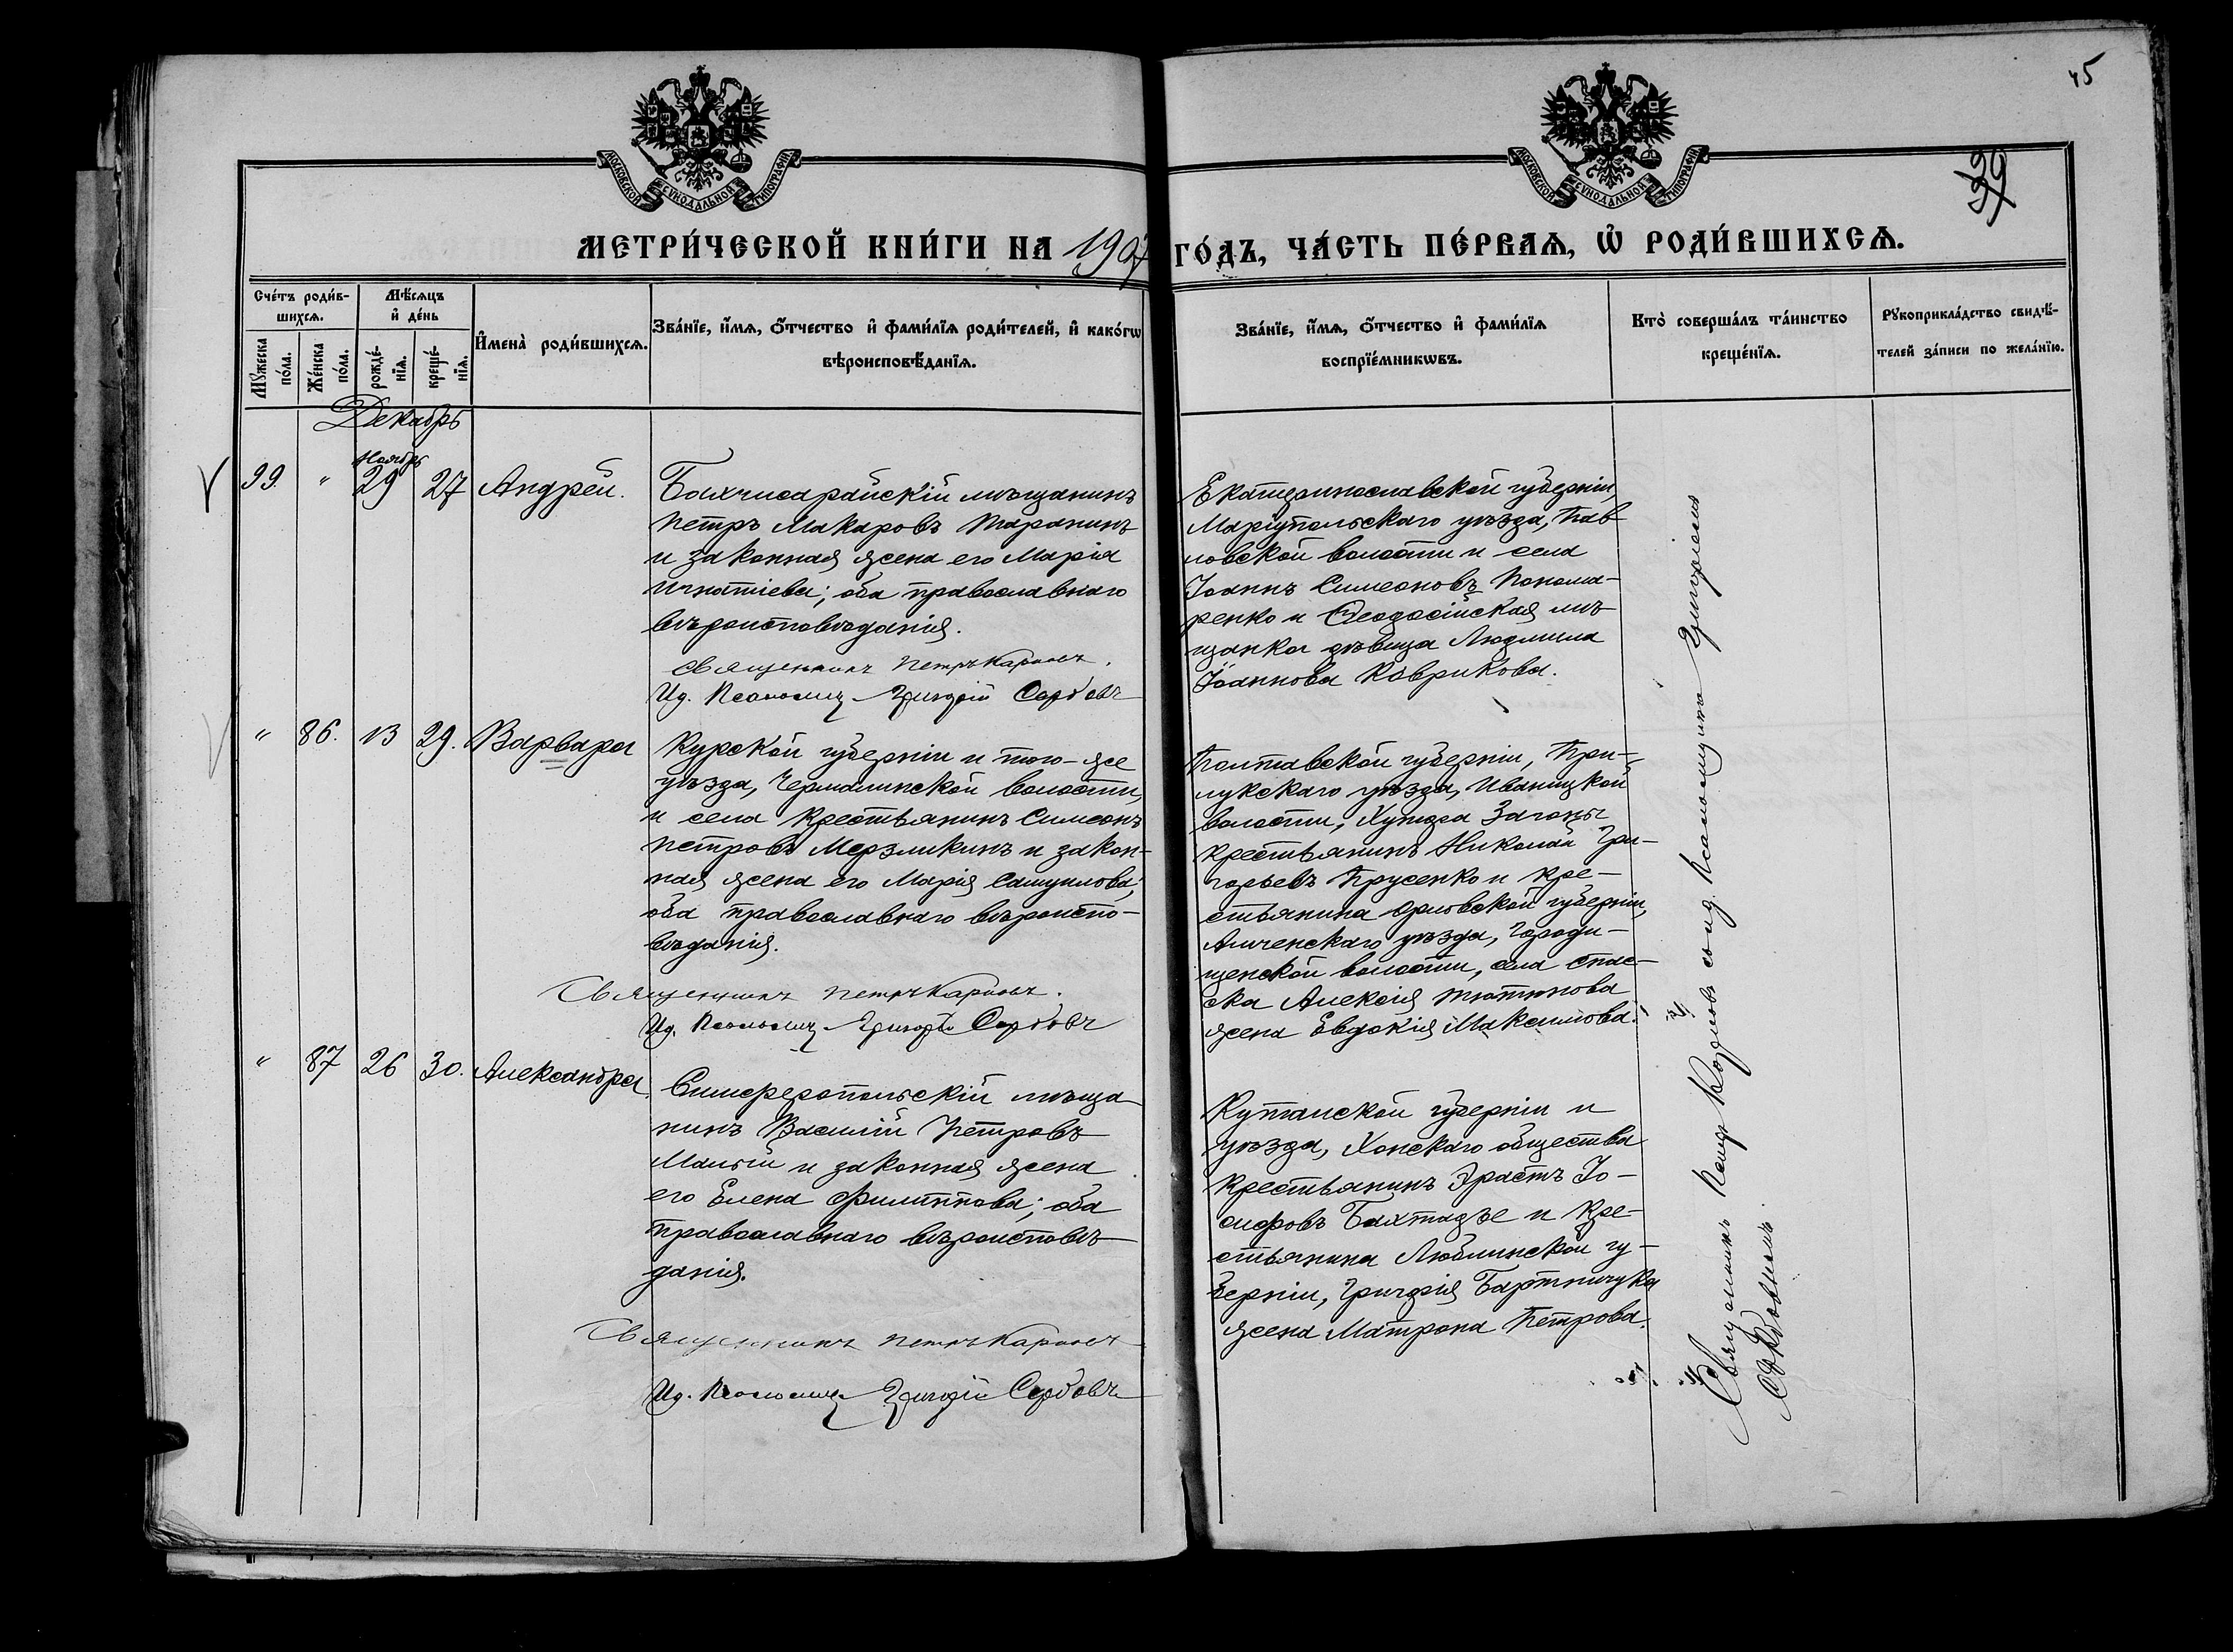 45
39
МОСКОВСКОЙ СѴНОДАЛЬНОЙ ТИПОГРАФІИ
МОСКОВСКОЙ СѴНОДАЛЬНОЙ ТИПОГРАФІИ
МЕТРИ́ЧЕСКОЙ КНИ́ГИ НА 1907 ГО́ДЪ, ЧА́СТЬ ПЕ́РВАѦ, Ѡ҆ РОДИ́ВШИХСѦ.
Сче́тъ роди́в-
шихсѧ.
Мꙋ́жеска
по́ла.
Же́нска
по́ла.
Мѣ́сѧцъ
и҆ де́нь
рожде́-
нїѧ.
креще́-
нїѧ.
И҆мена̀ роди́вшихсѧ.
Зва́нїе, и҆́мѧ, ѻ҆́тчество и҆ фами́лїѧ роди́телей, и҆ како́гѡ
вѣроисповѣ́данїѧ.
Зва́нїе, и҆́мѧ, ѻ҆́тчество и҆ фами́лїѧ
воспрїе́мникѡвъ.
Кто̀ соверша́лъ та́инство
креще́нїѧ.
Рꙋкоприкла́дство свидѣ́-
телей за́писи по жела́нїю.
Декабрь
99. " Ноябрь 29 27 Андрей.
Бахчисарайскій мѣщанинъ
Петръ Макаровъ Таранинъ
и законная жена его Марія
Игнатіева; оба православнаго
вѣроисповѣданія.
Священникъ Петръ Карповъ.
Ид. Псаломщ. Григорій Сербовъ
Екатеринославской губерніи,
Маріупольскаго уѣзда, Пав-
ловской волости и села
Іоаннъ Симеоновъ Понома-
ренко и Ѳеодосійская мѣ-
щанка дѣвица Людмила
Іоаннова Коврикова.
" 86. 13 29. Варвара
Курской губерніи и того-же
уѣзда, волости,
и села крестьянинъ Симеонъ
Петровъ Мерзликинъ и закон-
ная жена его Марія Самуилова;
оба православнаго вѣроиспо-
вѣданія.
Священникъ Петръ Карповъ.
Ид. Псаломщ. Григорій Сербовъ
Полтавской губерніи, При-
лукскаго уѣзда, Иваницкой
волости, Хутора Загоны
крестьянинъ Николай Гри-
горьевъ Прусенко и кре-
стьянина Орловской губерніи,
Мценскаго уѣзда, Городи-
щенской волости, села Спас-
ска Алексія Тютюнова
жена Евдокія Максимова.
" 87 26 30. Александра
Симферопольскій мѣща-
нинъ Василій Петровъ
Малый и законная жена
его Елена Филиппова; оба
православнаго вѣроисповѣ-
данія.
Священникъ Петръ Карповъ
Ид. Псаломщ. Григорій Сербовъ
Кутаиской губерніи и
уѣзда, Хонскаго общества
крестьянинъ Эрастъ Іо-
сифовъ Бахтадзе и кре-
стьянина Люблинской гу-
берніи, Григорія Бартничука
жена Матрона Петрова.
Священникъ Петръ Карповъ съ и. д. Псаломщика Григоріемъ
Сербовымъ.